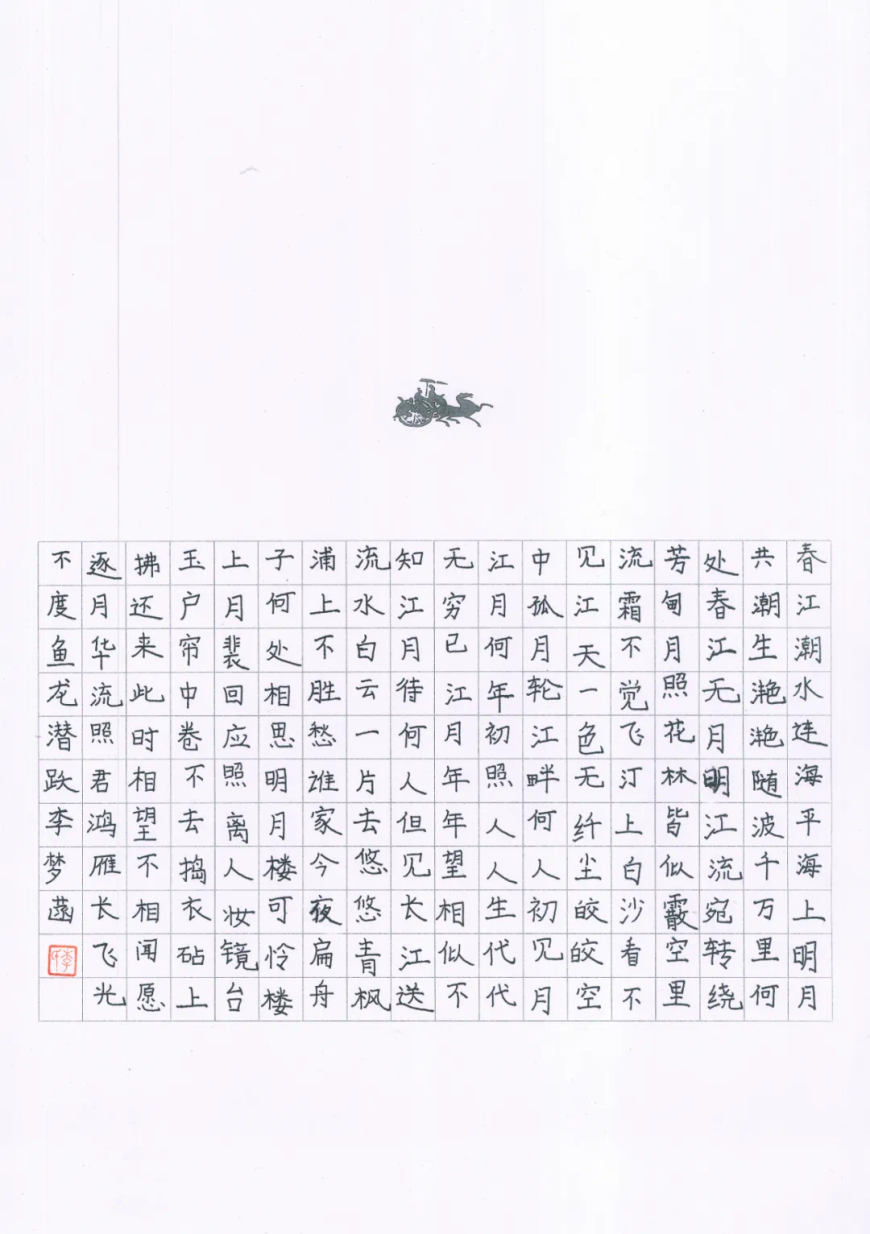 春江潮水连海平海上明月
共潮生滟滟随波千万里何
处春江无月明江流宛转绕
芳甸月照花林皆似霰空里
流霜不觉飞汀上白沙看不
见江天一色无纤尘皎皎空
中孤月轮江畔何人初见月
江月何年初照人人生代代
无穷已江月年年望相似不
知江月待何人但见长江送
流水白云一片去悠悠青枫
浦上不胜愁谁家今夜扁舟
子何处相思明月楼可怜楼
上月裴回应照离人妆镜台
玉户帘中卷不去捣衣砧上
拂还来此时相望不相闻愿
逐月华流照君鸿雁长飞光
不度鱼龙潜跃李梦菡